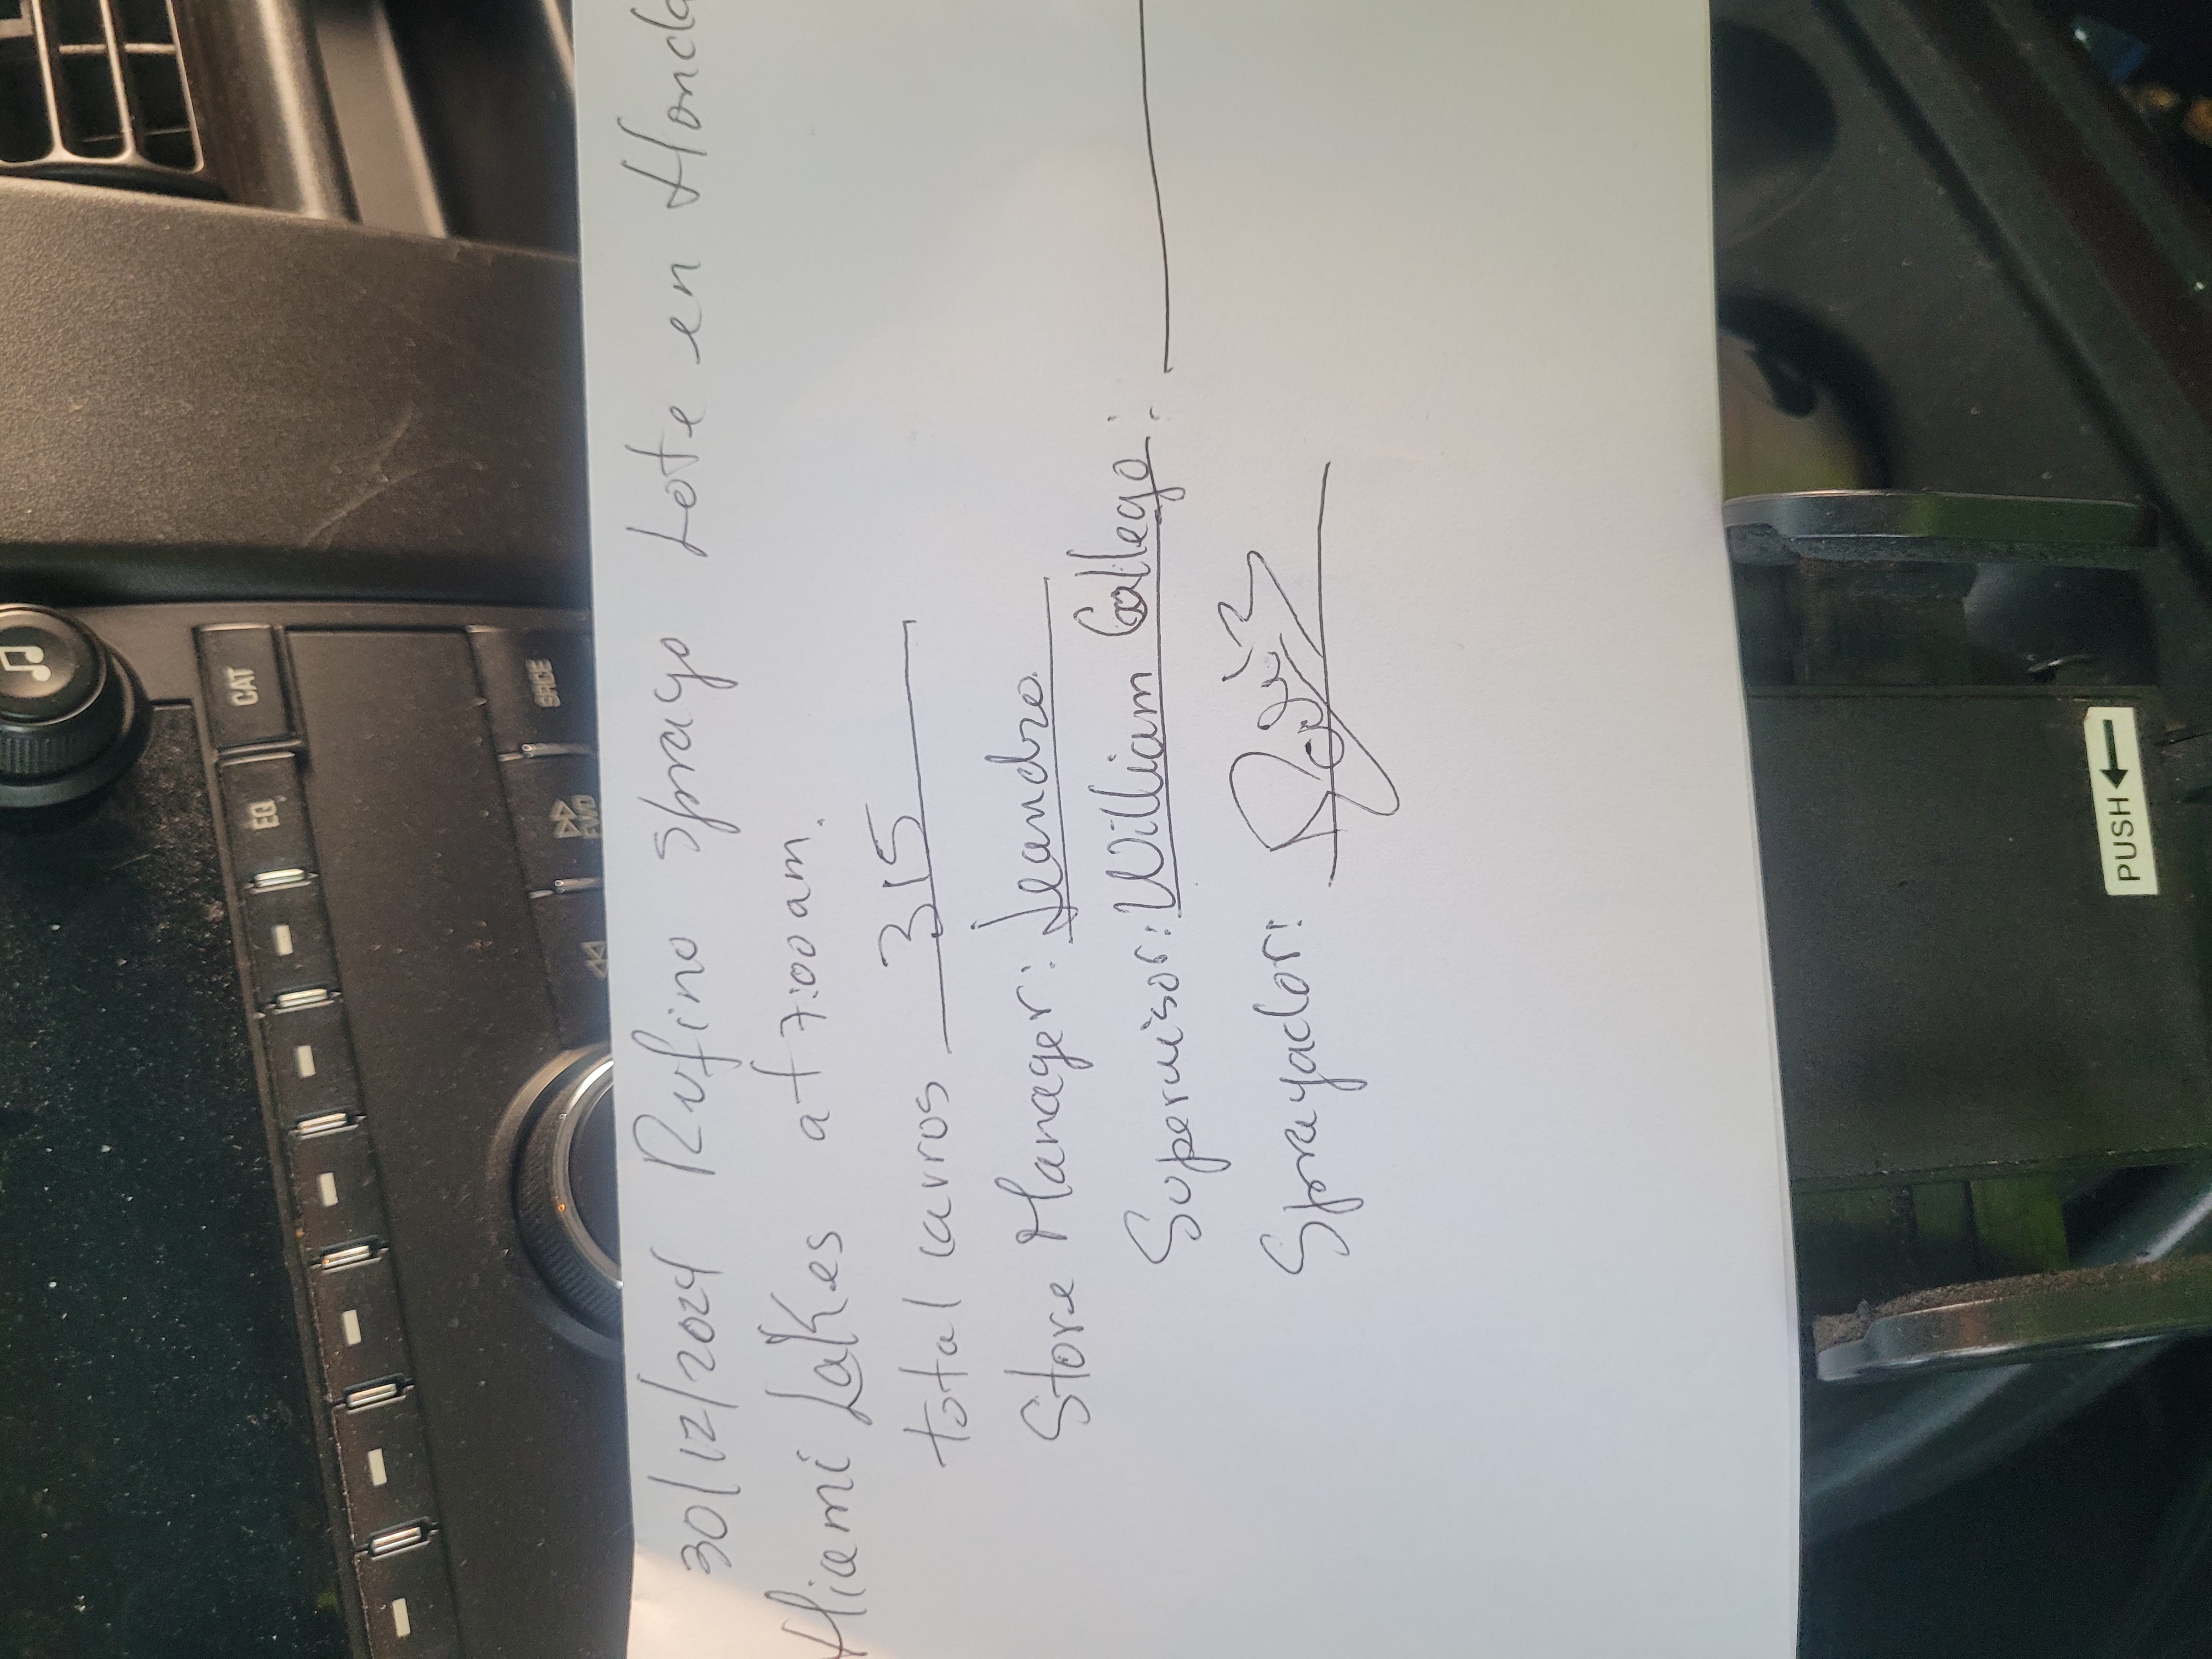 30/12/2024 Rufino sprayo Lote en Honda
Miami Lakes at 7:00am.
total carros 315
Store Manager: Leandro
Supervisor: William Gallego:
Sprayador:
CAT
EQ
SRCE
FWD
PUSH